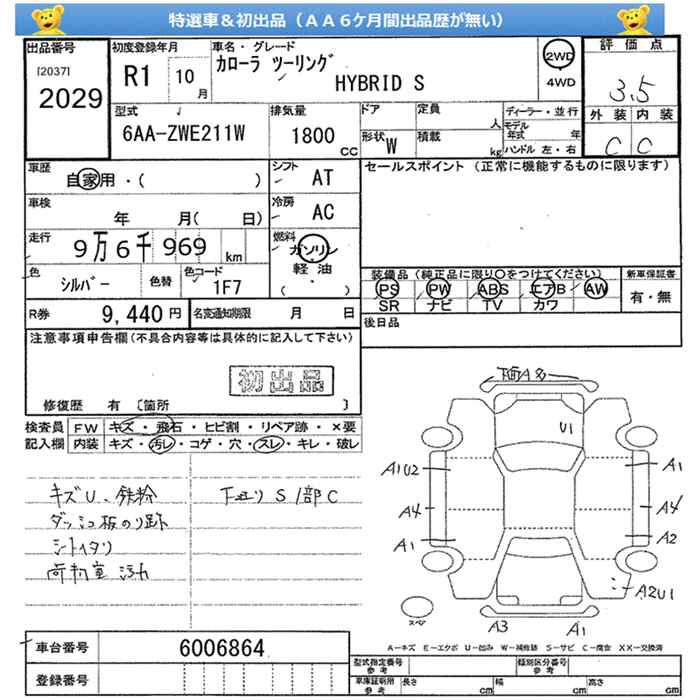 特選車＆初出品（ＡＡ６ケ月間出品歴が無い）
出品番号
[2037]
2029
初度登録年月
R1 10月
車名・グレード
カローラ ツーリング
HYBRID S
2WD
4WD
評価点
3.5
外装 内装
C C
型式
6AA-ZWE211W
排気量
1800 CC
ドア
形状 W
定員 人
積載 kg
ディーラー・並行
モデル年式 年
ハンドル 左・右
車歴
自家用・( )
シフト AT
車検
年 月( 日)
冷房 AC
走行
9万6千969 km
燃料
ガソリン
軽油
( ・ )
色
シルバー
色替
色コード
1F7
R券 9,440円
名変通知期限 月 日
セールスポイント（正常に機能するものに限ります）
装備品（純正品に限り○をつけてください）
新車保証書
PS PW ABS エアB AW
SR ナビ TV カワ
有・無
後日品
注意事項申告欄(不具合内容等は具体的に記入して下さい)
初出品
修復歴 有 〔箇所 〕
検査員記入欄
FW キズ・飛石・ヒビ割・リペア跡・×要
内装 キズ・汚レ・コゲ・穴・スレ・キレ・破レ
キズU、鉄粉
ダッシュ板のり跡
シートイタリ
荷物室 汚れ
下廻り S 1部C
下面A多
U1
A1U2
A1
A4
A4
A1
A2
A2U1
スペア
A3
A1
A－キズ E－エクボ U－凹み W－補修跡 S－サビ C－腐食 XX－交換済
車台番号 6006864
登録番号
型式指定番号 参考
類別区分番号 参考
車庫証明用 参考
長さ cm
幅 cm
高さ cm